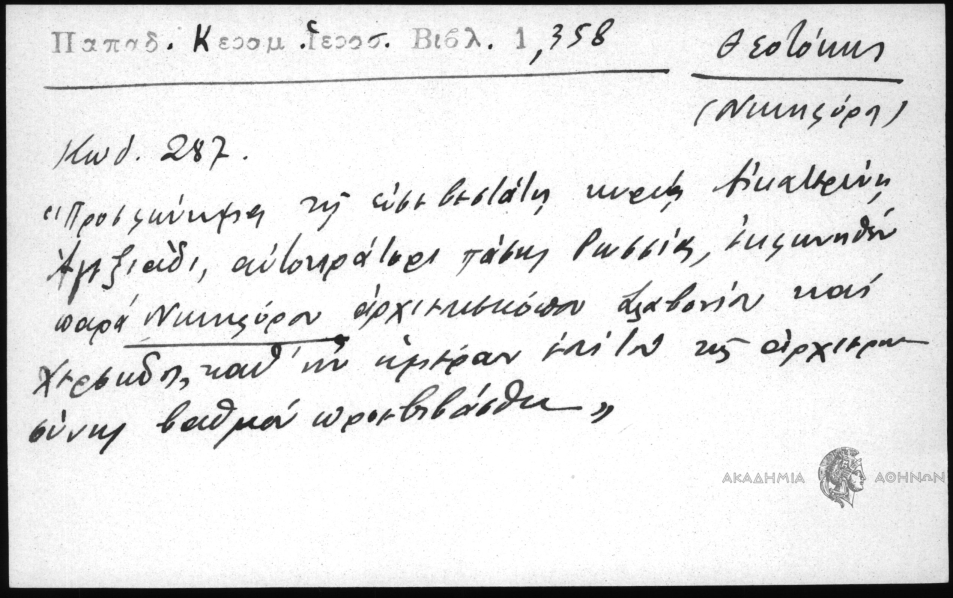 Παπαδ. Κεραμ. Ιεροσ. Βιβλ. 1, 358
Θεοτόκης
(Νικηφόρος)
Κωδ. 287.
"Προσφώνησις τῇ εὐσεβεστάτῃ κυρίᾳ Αἰκατερίνῃ
Ἀλεξιάδι, αὐτοκράτορι πάσης Ρωσσίας, ἐκφωνηθὲν
παρὰ Νικηφόρου ἀρχιεπισκόπου Σλαβονίου καὶ
Χερσῶνος, καθ' ἣν ἡμέραν ἐπὶ τὸν τῆς ἀρχιερω-
σύνης βαθμὸν προεβιβάσθη"
ΑΚΑΔΗΜΙΑ ΑΘΗΝΩΝ